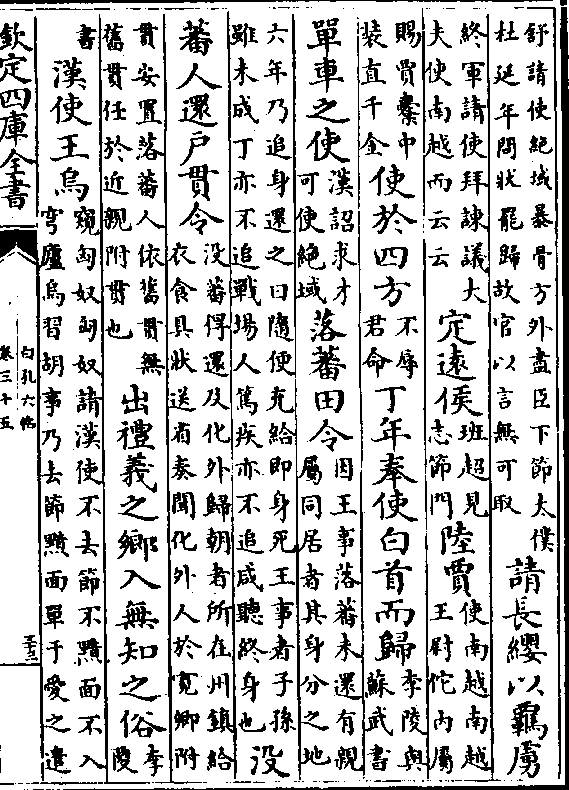 舒請使絶域暴骨方外盡臣下節太僕
杜延年問狀罷歸故官以言無可取
請長纓以羈虜
終軍請使拜諫議大
夫使南越而云云
定遠侯
班超見
志節門
陸賈
使南越南越
王尉佗内屬
賜賈橐中
装直千金
使於四方
不辱
君命
丁年奉使白首而歸
李陵與
蘇武書
單車之使
漢詔求才
可使絶域
落蕃田令
因王事落蕃未還有親
屬同居者其身分之地
六年乃追身還之日隨便充給即身死王事者子孫
雖未成丁亦不追戰場人篤疾亦不追咸聽終身也
没
蕃人還户貫令
没蕃得還及化外歸朝者所在州鎮給
衣食具狀送省奏聞化外人於寛鄉附
貫安置落蕃人依舊貫無
舊貫任於近親附貫也
出禮義之鄉入無知之俗
李
陵
書
漢使王烏
窺匈奴匈奴請漢使不去節不黥面不入
穹廬烏習胡事乃去節黥面單于愛之遣
欽定四庫全書
白孔六帖
卷三十五